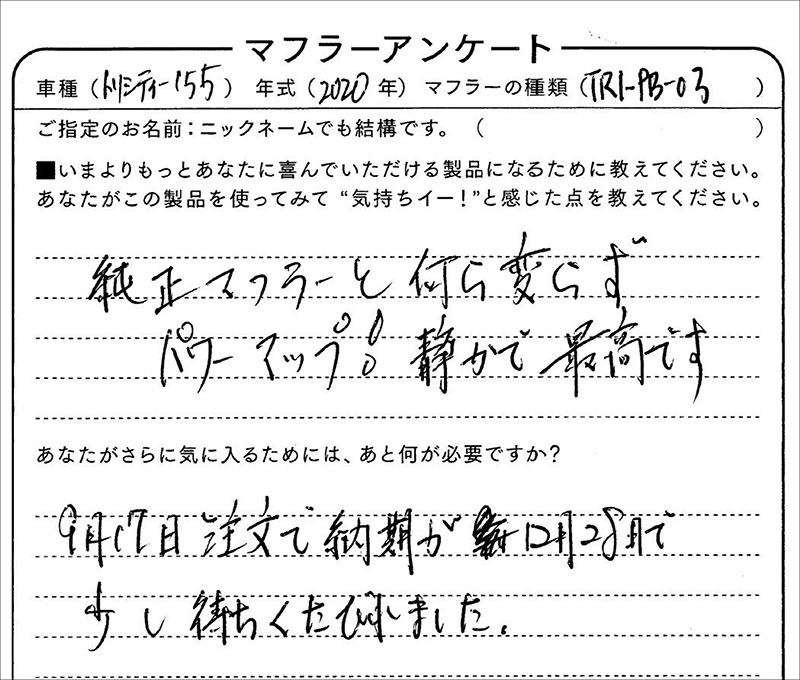 マフラーアンケート
車種（トリシティー155） 年式（2020年） マフラーの種類（TRI-PB-03）
ご指定のお名前：ニックネームでも結構です。（ ）
■いまよりもっとあなたに喜んでいただける製品になるために教えてください。
あなたがこの製品を使ってみて“気持ちイー！”と感じた点を教えてください。
純正マフラーと何ら変らず
パワーアップ！静かで最高です
あなたがさらに気に入るためには、あと何が必要ですか？
9月17日注文で納期が12月28日で
少し待ちくたびれました。